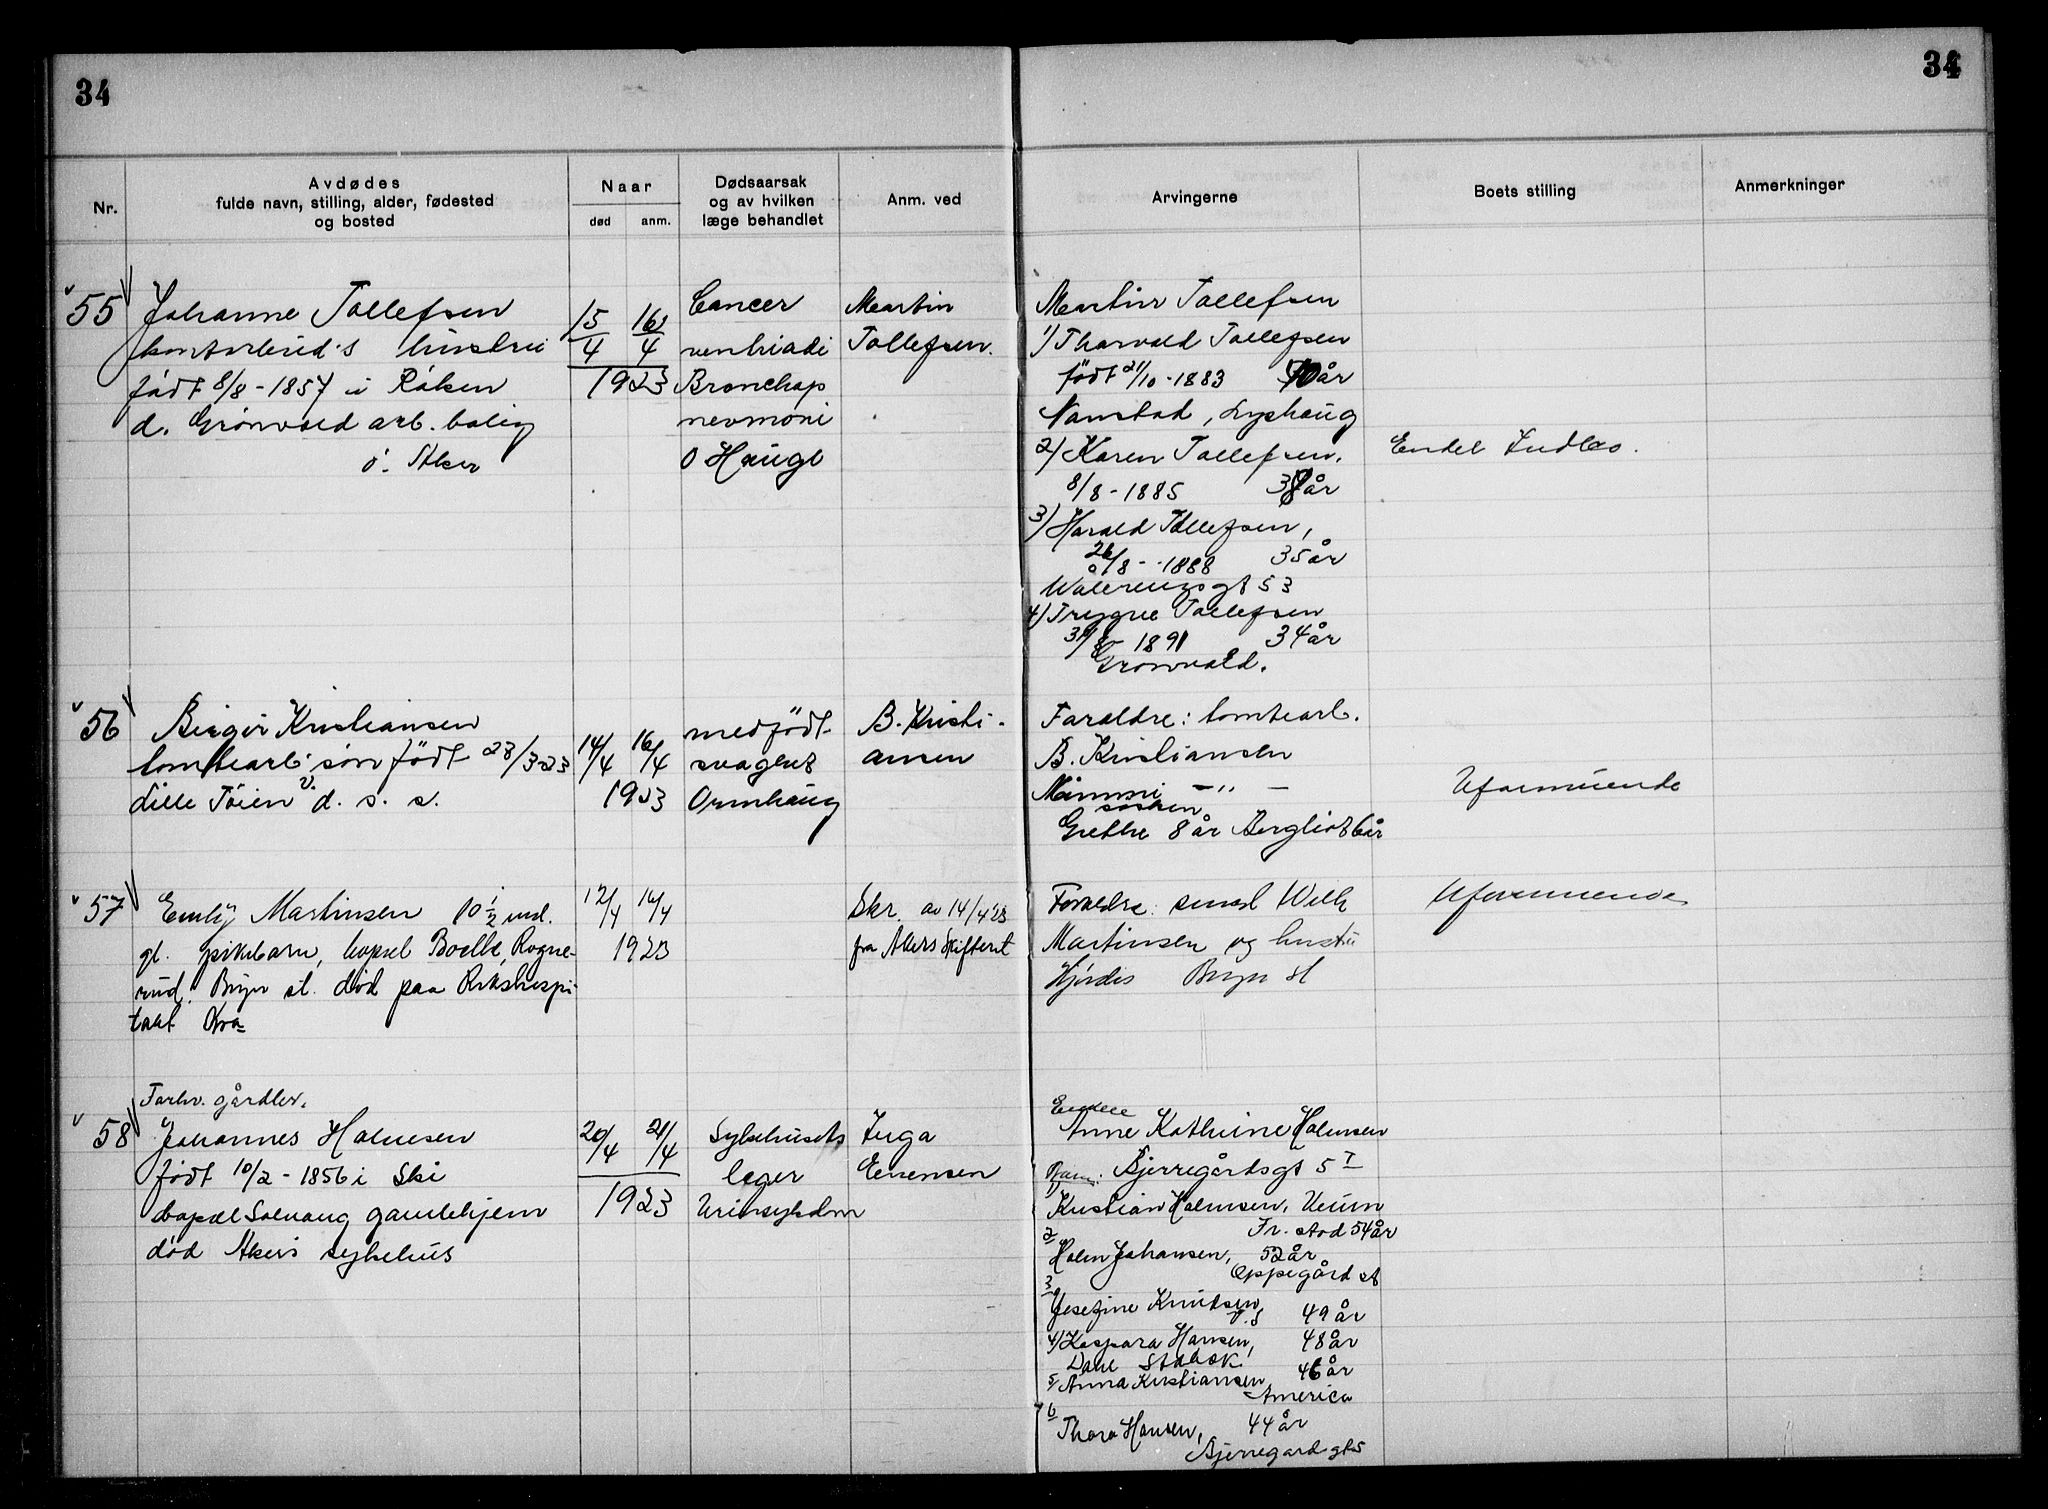 34
34
Nr.
Avdødes
fulde navn, stilling, alder, fødested
og bosted
Naar
død
anm.
Dødsaarsak
og av hvilken
læge behandlet
Anm. ved
Arvingerne
Boets stilling
Anmerkninger
55
Johanne Tollefsen
kontorbud's hustru
født 8/8 - 1857 i Røken
d. Grönvold arb. bolig
Ø. Aker
15/4 16/4
1923
Cancer
ventriculi
Bronchop
nevmoni
O Hauge
Martin
Tollefsen.
Martin Tollefsen
1) Thorvald Tollefsen
født 21/10 - 1883 år
2) Karen Tollefsen.
8/8 - 1885 år
3) Harald Tollefsen,
/8 - 1888 35 år
Wålerenggt 53
4) Trygve Tollefsen
1891 34 år
Grönvold.
56
Birger Kristiansen
tomtearb. søn född 28/3-23
Lille Töien v. d. s. s.
14/4 16/4
1923
medfödt
svaghet
Ormhaug
B. Kristi-
ansen
Foreldre: tomtearb.
B. Kristiansen
Mimmi - " -
søsken
Grethe 8 år Bergliot 6 år
Uformuende
57
Emly Martinsen 10 1/2 md.
gl. pikebarn, bopæl Boelke, Rogne-
rud, Bryn st. död paa Rikshospi-
talet Kra-
12/4 16/4
1923
Skr. av 14/4 23
fra Akers Skifteret
Foreldre: Wilh
Martinsen og hustru
Hjördis Bryn st
Uformuende
Forhv. gårdbr.
58
Johannes Holmsen
født 10/2 - 1856 i Ski
bopæl Solhaug gamlehjem
død Akers sykehus
20/4 21/4
1923
Sykehusets
læger
Urinsykdom
Inga
Evensen
Enke
Anne Kathrine Holmsen
Barn: Bjerregårdsgt 5 I
1)
Kristian Holmsen,
Fr. stad 54 år
2
Holm Johansen, 52 år
Oppegård st
3
Josefine Knutsen 49 år
4) Kaspara Hansen, 48 år
Stabæk
5) Anna Kristiansen 46 år
America
6
Thora Hansen, 44 år
Bjerregård gt 5